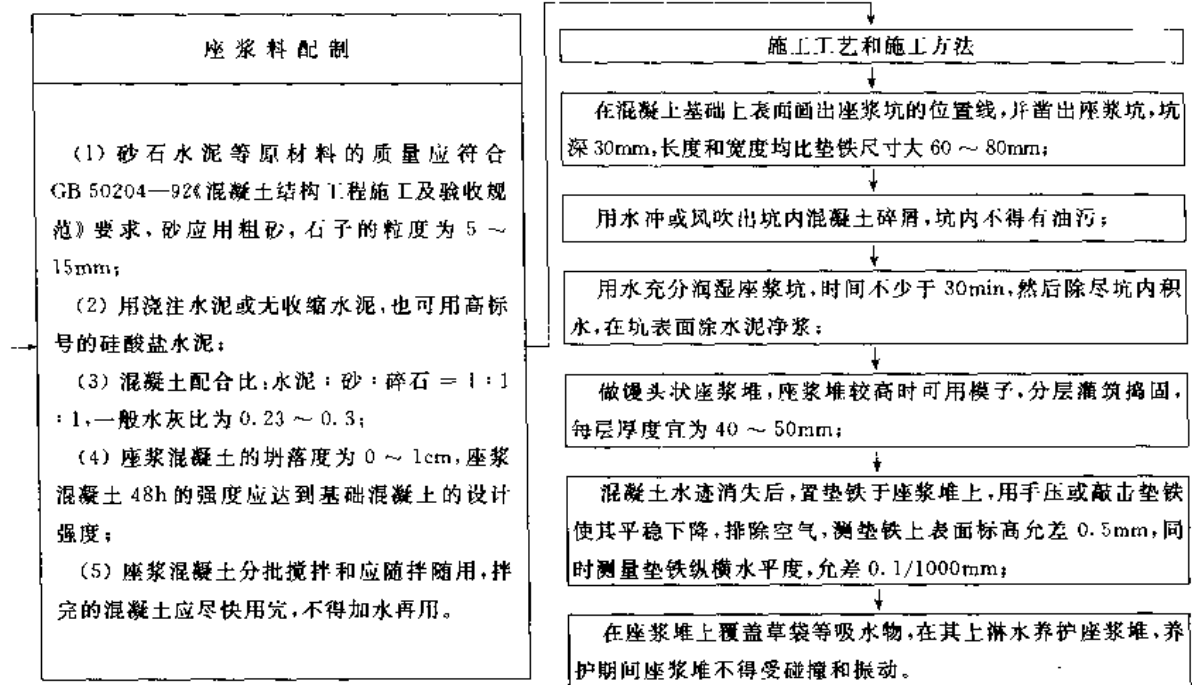 座浆料配制
(1) 砂石水泥等原材料的质量应符合
GB 50204—92《混凝土结构工程施工及验收规
范》要求,砂应用粗砂,石子的粒度为 5 ~
15mm;
(2) 用浇注水泥或无收缩水泥,也可用高标
号的硅酸盐水泥;
(3) 混凝土配合比:水泥:砂:碎石 = 1:1
:1,一般水灰比为 0.23 ~ 0.3;
(4) 座浆混凝土的坍落度为 0 ~ 1cm,座浆
混凝土 48h 的强度应达到基础混凝土的设计
强度;
(5) 座浆混凝土分批搅拌和应随拌随用,拌
完的混凝土应尽快用完,不得加水再用。
施工工艺和施工方法
在混凝土基础上表面画出座浆坑的位置线,并凿出座浆坑,坑
深 30mm,长度和宽度均比垫铁尺寸大 60 ~ 80mm;
用水冲或风吹出坑内混凝土碎屑,坑内不得有油污;
用水充分润湿座浆坑,时间不少于 30min,然后除尽坑内积
水,在坑表面涂水泥净浆;
做馒头状座浆堆,座浆堆较高时可用模子,分层灌筑捣固,
每层厚度宜为 40 ~ 50mm;
混凝土水迹消失后,置垫铁于座浆堆上,用手压或敲击垫铁
使其平稳下降,排除空气,测垫铁上表面标高允差 0.5mm,同
时测量垫铁纵横水平度,允差 0.1/1000mm;
在座浆堆上覆盖草袋等吸水物,在其上淋水养护座浆堆,养
护期间座浆堆不得受碰撞和振动。